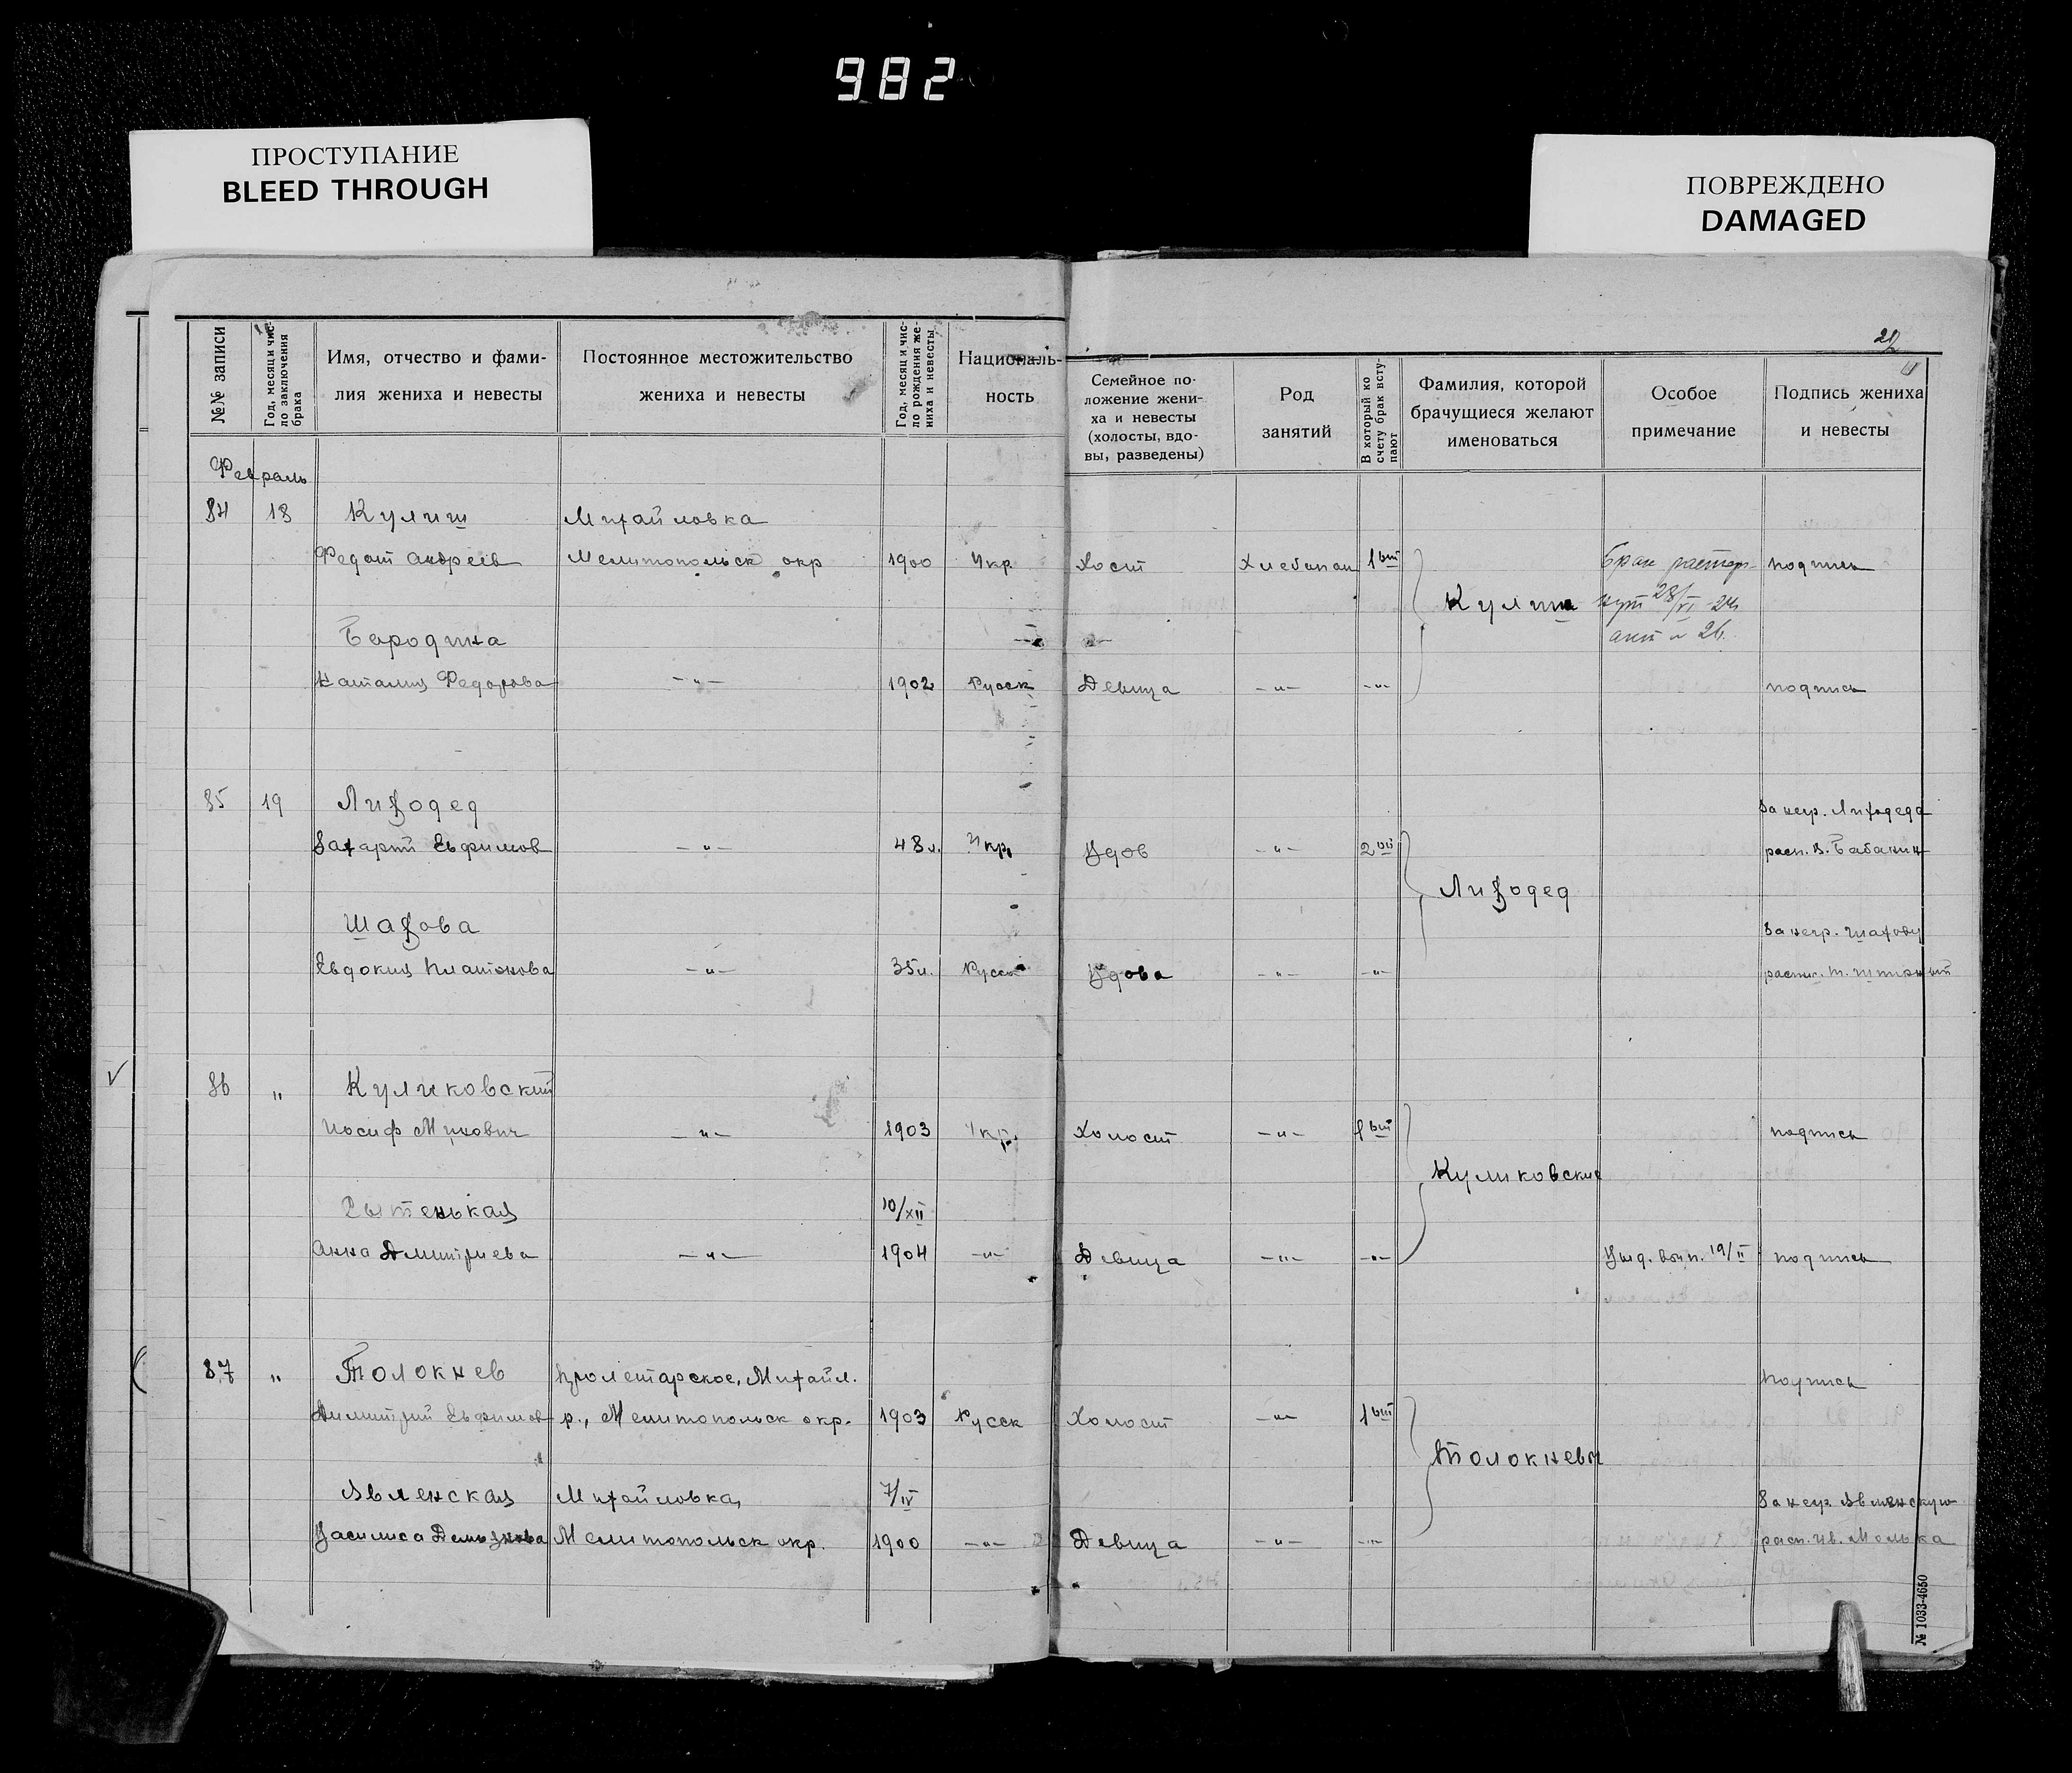 982
ПРОСТУПАНИЕ
BLEED THROUGH
ПОВРЕЖДЕНО
DAMAGED
№№ записи
Год, месяц и число заключения брака
Имя, отчество и фами-
лия жениха и невесты
Постоянное местожительство
жениха и невесты
Год, месяц и чис-
ло рождения же-
ниха и невесты
Националь-
ность
Семейное по-
ложение жени-
ха и невесты
(холосты, вдо-
вы, разведены)
Род
занятий
В который ко
счету брак всту-
пают
Фамилия, которой
брачущиеся желают
именоваться
Особое
примечание
Подпись жениха
и невесты
Февраль
84 18 Кулиш Михайловка
Федот Андреев Мелитопольск окр 1900 Укр Хост Хлебопаш 1ый Брак расторг- подпись
Кулиш нут 28/VI-24
Бородина акт № 26.
Наталия Федорова —"— 1902 Русск Девица —"— —"— подпись
85 19 Лиходед За негр. Лиходеда
Захарий Евфимов —"— 48 л. Укр. Вдов —"— 2ый расп. В. Бабанин
Лиходед
Шахова За негр. Шахову
Евдокия Платонова —"— 35 л. Русск Вдова —"— —"—
86 " Куликовский
Иосиф —"— 1903 Укр. Холост —"— 1ый подпись
Куликовские
10/XII
Анна Димитриева —"— 1904 —"— Девица —"— —"— Выд. вып. 19/II подпись
87 " Толокнев Пролетарское, Михайл. подпись
Димитрий Евфимов р., Мелитопольск окр. 1903 Русск Холост —"— 1ый
Толокневы
Явленская Михайловка, 7/IV За негр Явленскую
Василиса Демьянова Мелитопольск окр. 1900 —"— Девица —"— —"— расп. Ив. Молька
№ 1033-4650